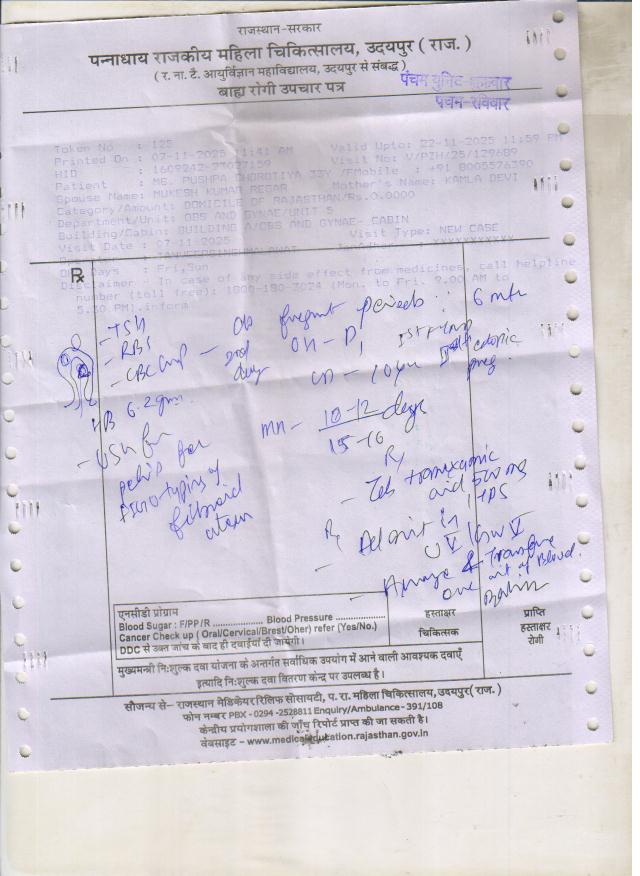 राजस्थान-सरकार
पन्नाधाय राजकीय महिला चिकित्सालय, उदयपुर ( राज. )
( र. ना. टै. आयुर्विज्ञान महाविद्यालय, उदयपुर से संबद्ध )
बाह्य रोगी उपचार पत्र
पंचम युनिट-शुक्रवार
पंचम-रविवार
Token No : 125
Printed On : 07-11-2025 11:41 AM Valid Upto: 22-11-2025 11:59 PM
HID : Visit No: V/PZH/25/129689
Patient : MS. PUSHPA 33Y /F Mobile : +91 8005576390
Spouse Name: MUKESH KUMAR REGAR Mother's Name: KAMLA DEVI
Category/Amount: DOMICILE OF RAJASTHAN/Rs.0.0000
Department/Unit: OBS AND GYNAE/UNIT 5
Building/Cabin: BUILDING A/OBS AND GYNAE- CABIN
Visit Date : 07-11-2025 Visit Type: NEW CASE
Days : Fri,Sun
Disclaimer - In case of any side effect from medicines, call helpline
number (toll free): (Mon. to Fri. 9.00 AM to
5.30 PM).inform
Rx
- TSH
- RBS
- CBC
c/o frequent periods : 6 mth
2nd day
Ist
ectopic preg
HB 6.2 gm
MH - 10-12 days
15-16
- USG for
pelvis for
typing of
fibroid
uterus
Rx
- Tab tranexamic
acid 500 mg
TDS
Rx
- Admit in
- Arrange & Transfuse
one unit of Blood.
एनसीडी प्रोग्राम
Blood Sugar : F/PP/R .................. Blood Pressure ..................
Cancer Check up ( Oral/Cervical/Brest/Oher) refer (Yes/No.)
DDC से उक्त जांच के बाद ही दवाईयां दी जायेगी।
हस्ताक्षर
चिकित्सक
प्राप्ति
हस्ताक्षर
रोगी
मुख्यमन्त्री नि:शुल्क दवा योजना के अन्तर्गत सर्वाधिक उपयोग में आने वाली आवश्यक दवाएँ
इत्यादि नि:शुल्क दवा वितरण केन्द्र पर उपलब्ध है।
सौजन्य से– राजस्थान मेडिकेयर रिलिफ सोसायटी, प. रा. महिला चिकित्सालय, उदयपुर( राज. )
फोन नम्बर PBX - 0294 -2528811 Enquiry/Ambulance - 391/108
केन्द्रीय प्रयोगशाला की जाँच रिपोर्ट प्राप्त की जा सकती है।
वेबसाइट – www.medicaleducation.rajasthan.gov.in